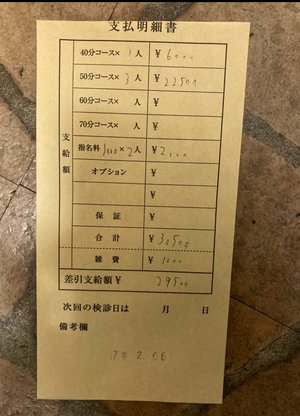 支払明細書
40分コース× 1人 ¥6000
50分コース× 3人 ¥22500
60分コース× 人 ¥
70分コース× 人 ¥
指名料 1000×2人 ¥2,000
オプション ¥
¥
保証 ¥
合計 ¥30500
雑費 ¥1000
支給額
差引支給額¥ 29500
次回の検診日は 月 日
備考欄